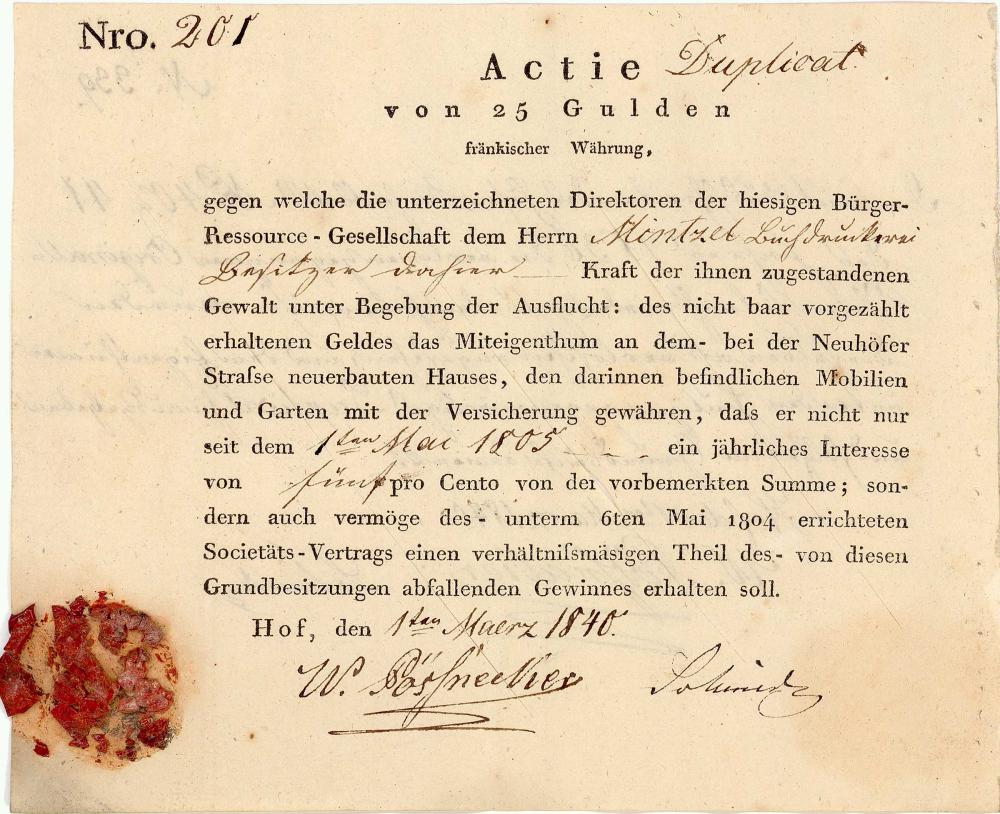 Nro. 201
Actie Duplicat
von 25 Gulden
fränkischer Währung,
gegen welche die unterzeichneten Direktoren der hiesigen Bürger-
Ressource - Gesellschaft dem Herrn Mintzel Buchdruckerei
Besitzer dahier Kraft der ihnen zugestandenen
Gewalt unter Begebung der Ausflucht: des nicht baar vorgezählt
erhaltenen Geldes das Miteigenthum an dem- bei der Neuhöfer
Straſse neuerbauten Hauses, den darinnen befindlichen Mobilien
und Garten mit der Versicherung gewähren, daſs er nicht nur
seit dem 1ten Mai 1805 ein jährliches Interesse
von fünf pro Cento von der vorbemerkten Summe; son-
dern auch vermöge des - unterm 6ten Mai 1804 errichteten
Societäts-Vertrags einen verhältniſsmäsigen Theil des - von diesen
Grundbesitzungen abfallenden Gewinnes erhalten soll.
Hof, den 1ten Maerz 1840.
W. Pößnecker Schmidt